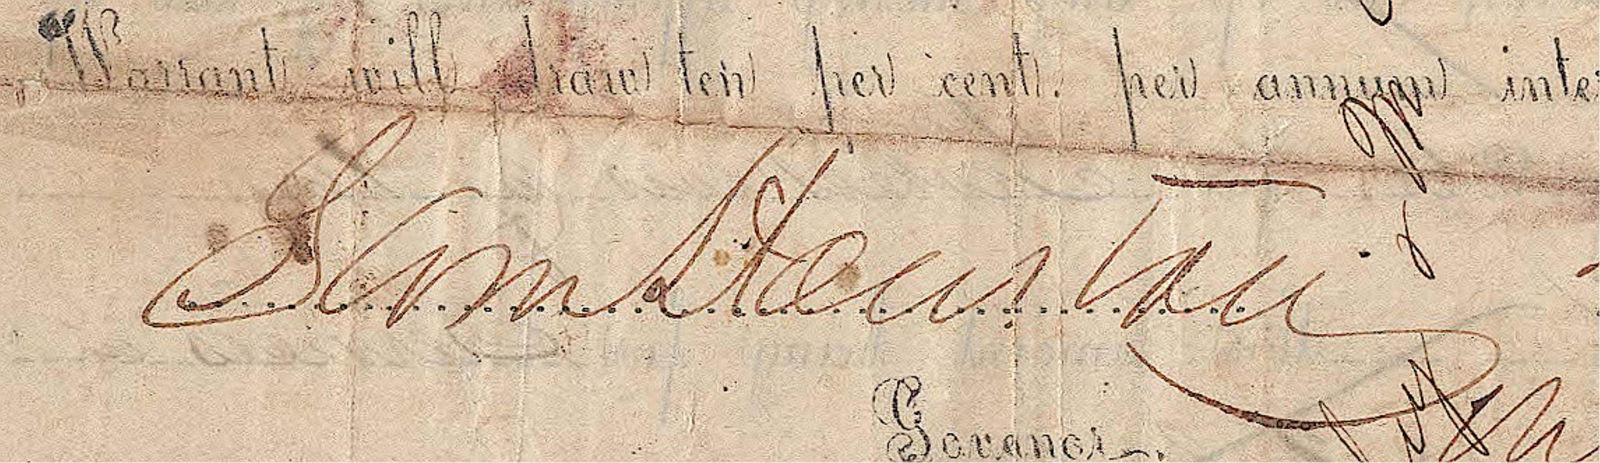 Warrant will draw ten per cent. per annum inte
Sam Houston
Govenor